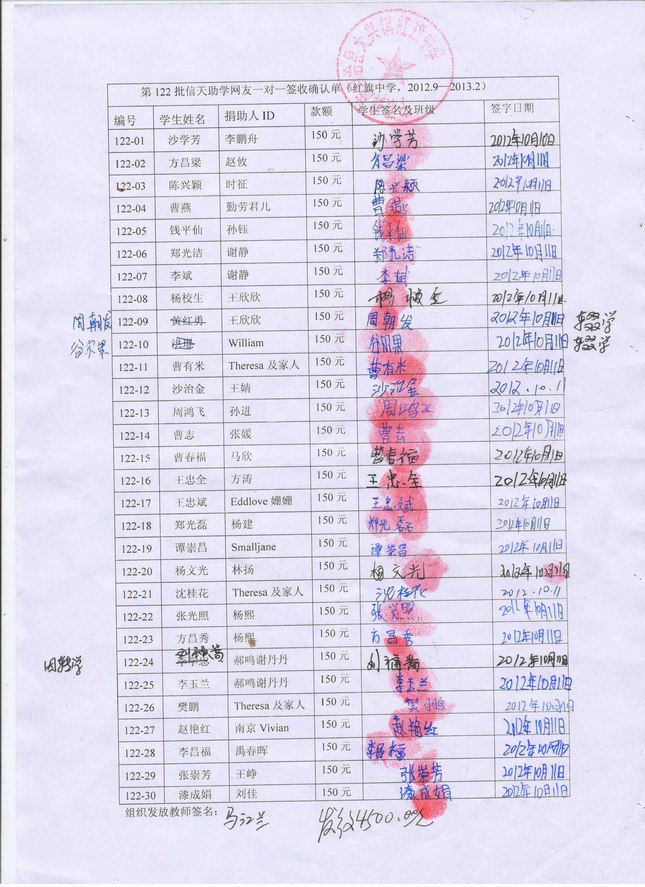 大兴镇红旗中学
第122批信天助学网友一对一签收确认单（红旗中学，2012.9—2013.2）
编号 学生姓名 捐助人ID 款额 学生签名及班级 签字日期
122-01 沙学芳 李鹏舟 150元 沙学芳 2012年10月10日
122-02 方昌梁 赵攸 150元 方昌梁 2012年10月11日
122-03 陈兴颖 时征 150元 陈兴颖 2012年10月11日
122-04 曹燕 勤劳君儿 150元 曹燕 2012年10月11日
122-05 钱平仙 孙钰 150元 钱平仙 2012年10月11日
122-06 郑光洁 谢静 150元 郑光洁 2012年10月11日
122-07 李斌 谢静 150元 李斌 2012年10月11日
122-08 杨校生 王欣欣 150元 杨 2012年10月11日
周朝发 122-09 黄红勇 王欣欣 150元 周朝发 2012年10月11日 辍学
谷尔果 122-10 洪珊 William 150元 谷尔果 2012年10月11日 辍学
122-11 曹有米 Theresa及家人 150元 曹有米 2012年10月11日
122-12 沙治金 王婧 150元 沙治金 2012.10.11
122-13 周鸿飞 孙进 150元 周鸿飞 2012年10月11日
122-14 曹志 张媛 150元 曹志 2012年10月11日
122-15 曹春福 马欣 150元 曹春福 2012年10月11日
122-16 王忠全 方涛 150元 王忠全 2012年10月11日
122-17 王忠斌 Eddlove姗姗 150元 王忠斌 2012年10月11日
122-18 郑光磊 杨建 150元 郑光磊 2012年10月11日
122-19 谭崇昌 Smalljane 150元 谭崇昌 2012年10月11日
122-20 杨文光 林扬 150元 杨文光 2012年10月11日
122-21 沈桂花 Theresa及家人 150元 沈桂花 2012.10.11
122-22 张光照 杨熙 150元 张光照 2012年10月11日
122-23 方昌秀 杨熙 150元 方昌秀 2012年10月11日
122-24 郝鸣谢丹丹 150元 2012年10月11日
122-25 李玉兰 郝鸣谢丹丹 150元 李玉兰 2012年10月11日
122-26 樊鹏 Theresa及家人 150元 樊鹏 2012年10月11日
122-27 赵艳红 南京Vivian 150元 赵艳红 2012年10月11日
122-28 李昌福 禹春晖 150元 李昌福 2012年10月11日
122-29 张崇芳 王峥 150元 张崇芳 2012年10月11日
122-30 漆成娟 刘佳 150元 漆成娟 2012年10月11日
组织发放教师签名：马江兰 发放4500.00元